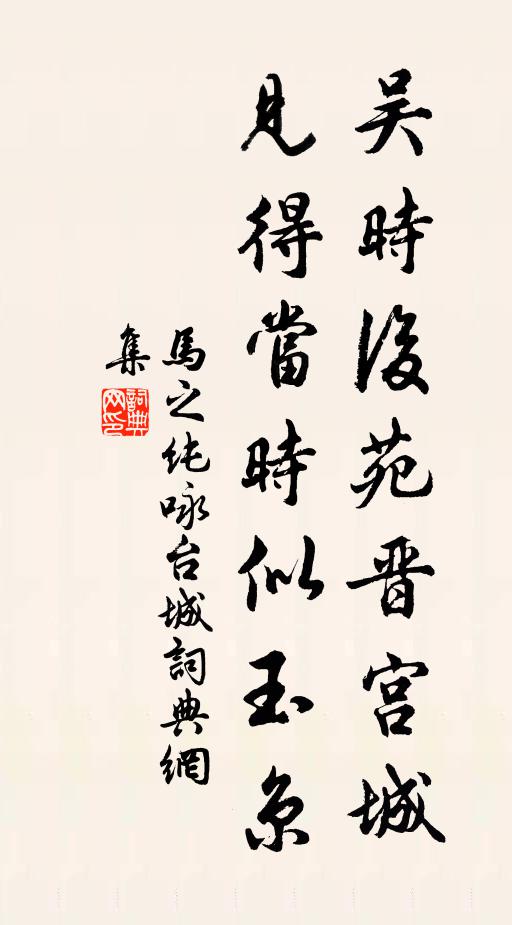 吴時後苑晋宫城
見得當時似玉京
馬之纯咏台城詞典網
集
詞典網印